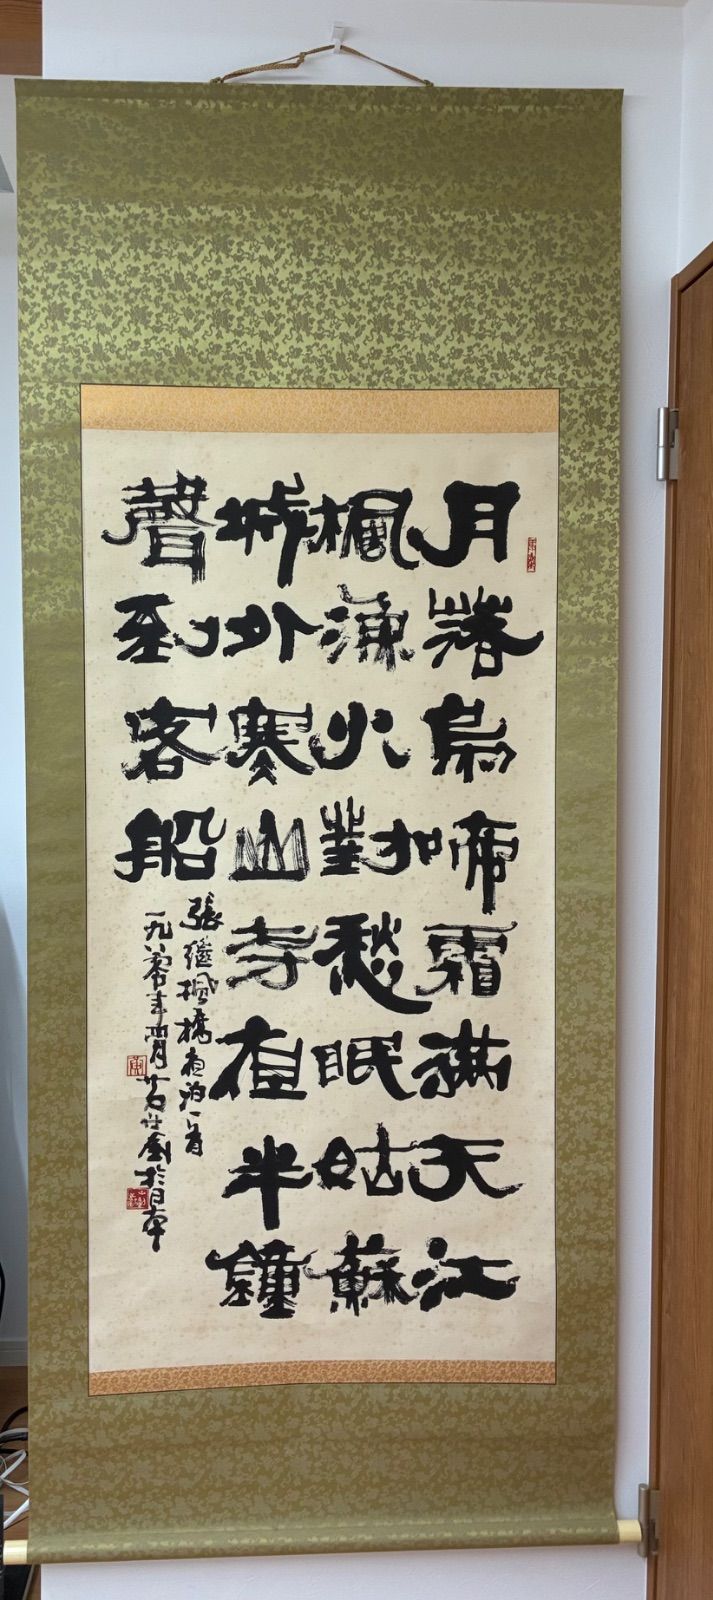 月落烏啼霜滿天江
楓漁火對愁眠姑蘇
城外寒山寺夜半鐘
聲到客船
張繼楓橋夜泊一首
一九 年 月 於日本